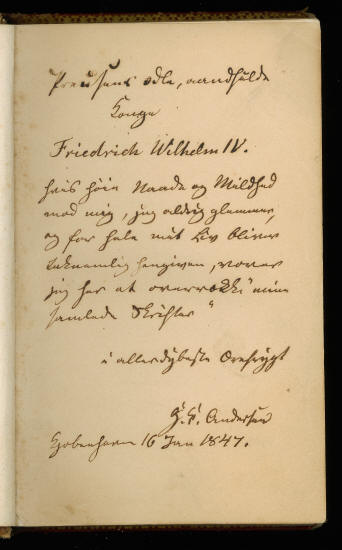 Preusens ædle, aandfulde
Konge
Friedrich Wilhelm IV.
hvis høie Naade og Mildhed
mod mig, jeg aldrig glemmer,
og for hele mit Liv bliver
taknemlig hengiven, vover
jeg her at overrække "mine
samlede Skrifter"
i allerdybeste Ærefrygt
H. C. Andersen
Kjøbenhavn 16 Jan 1847.